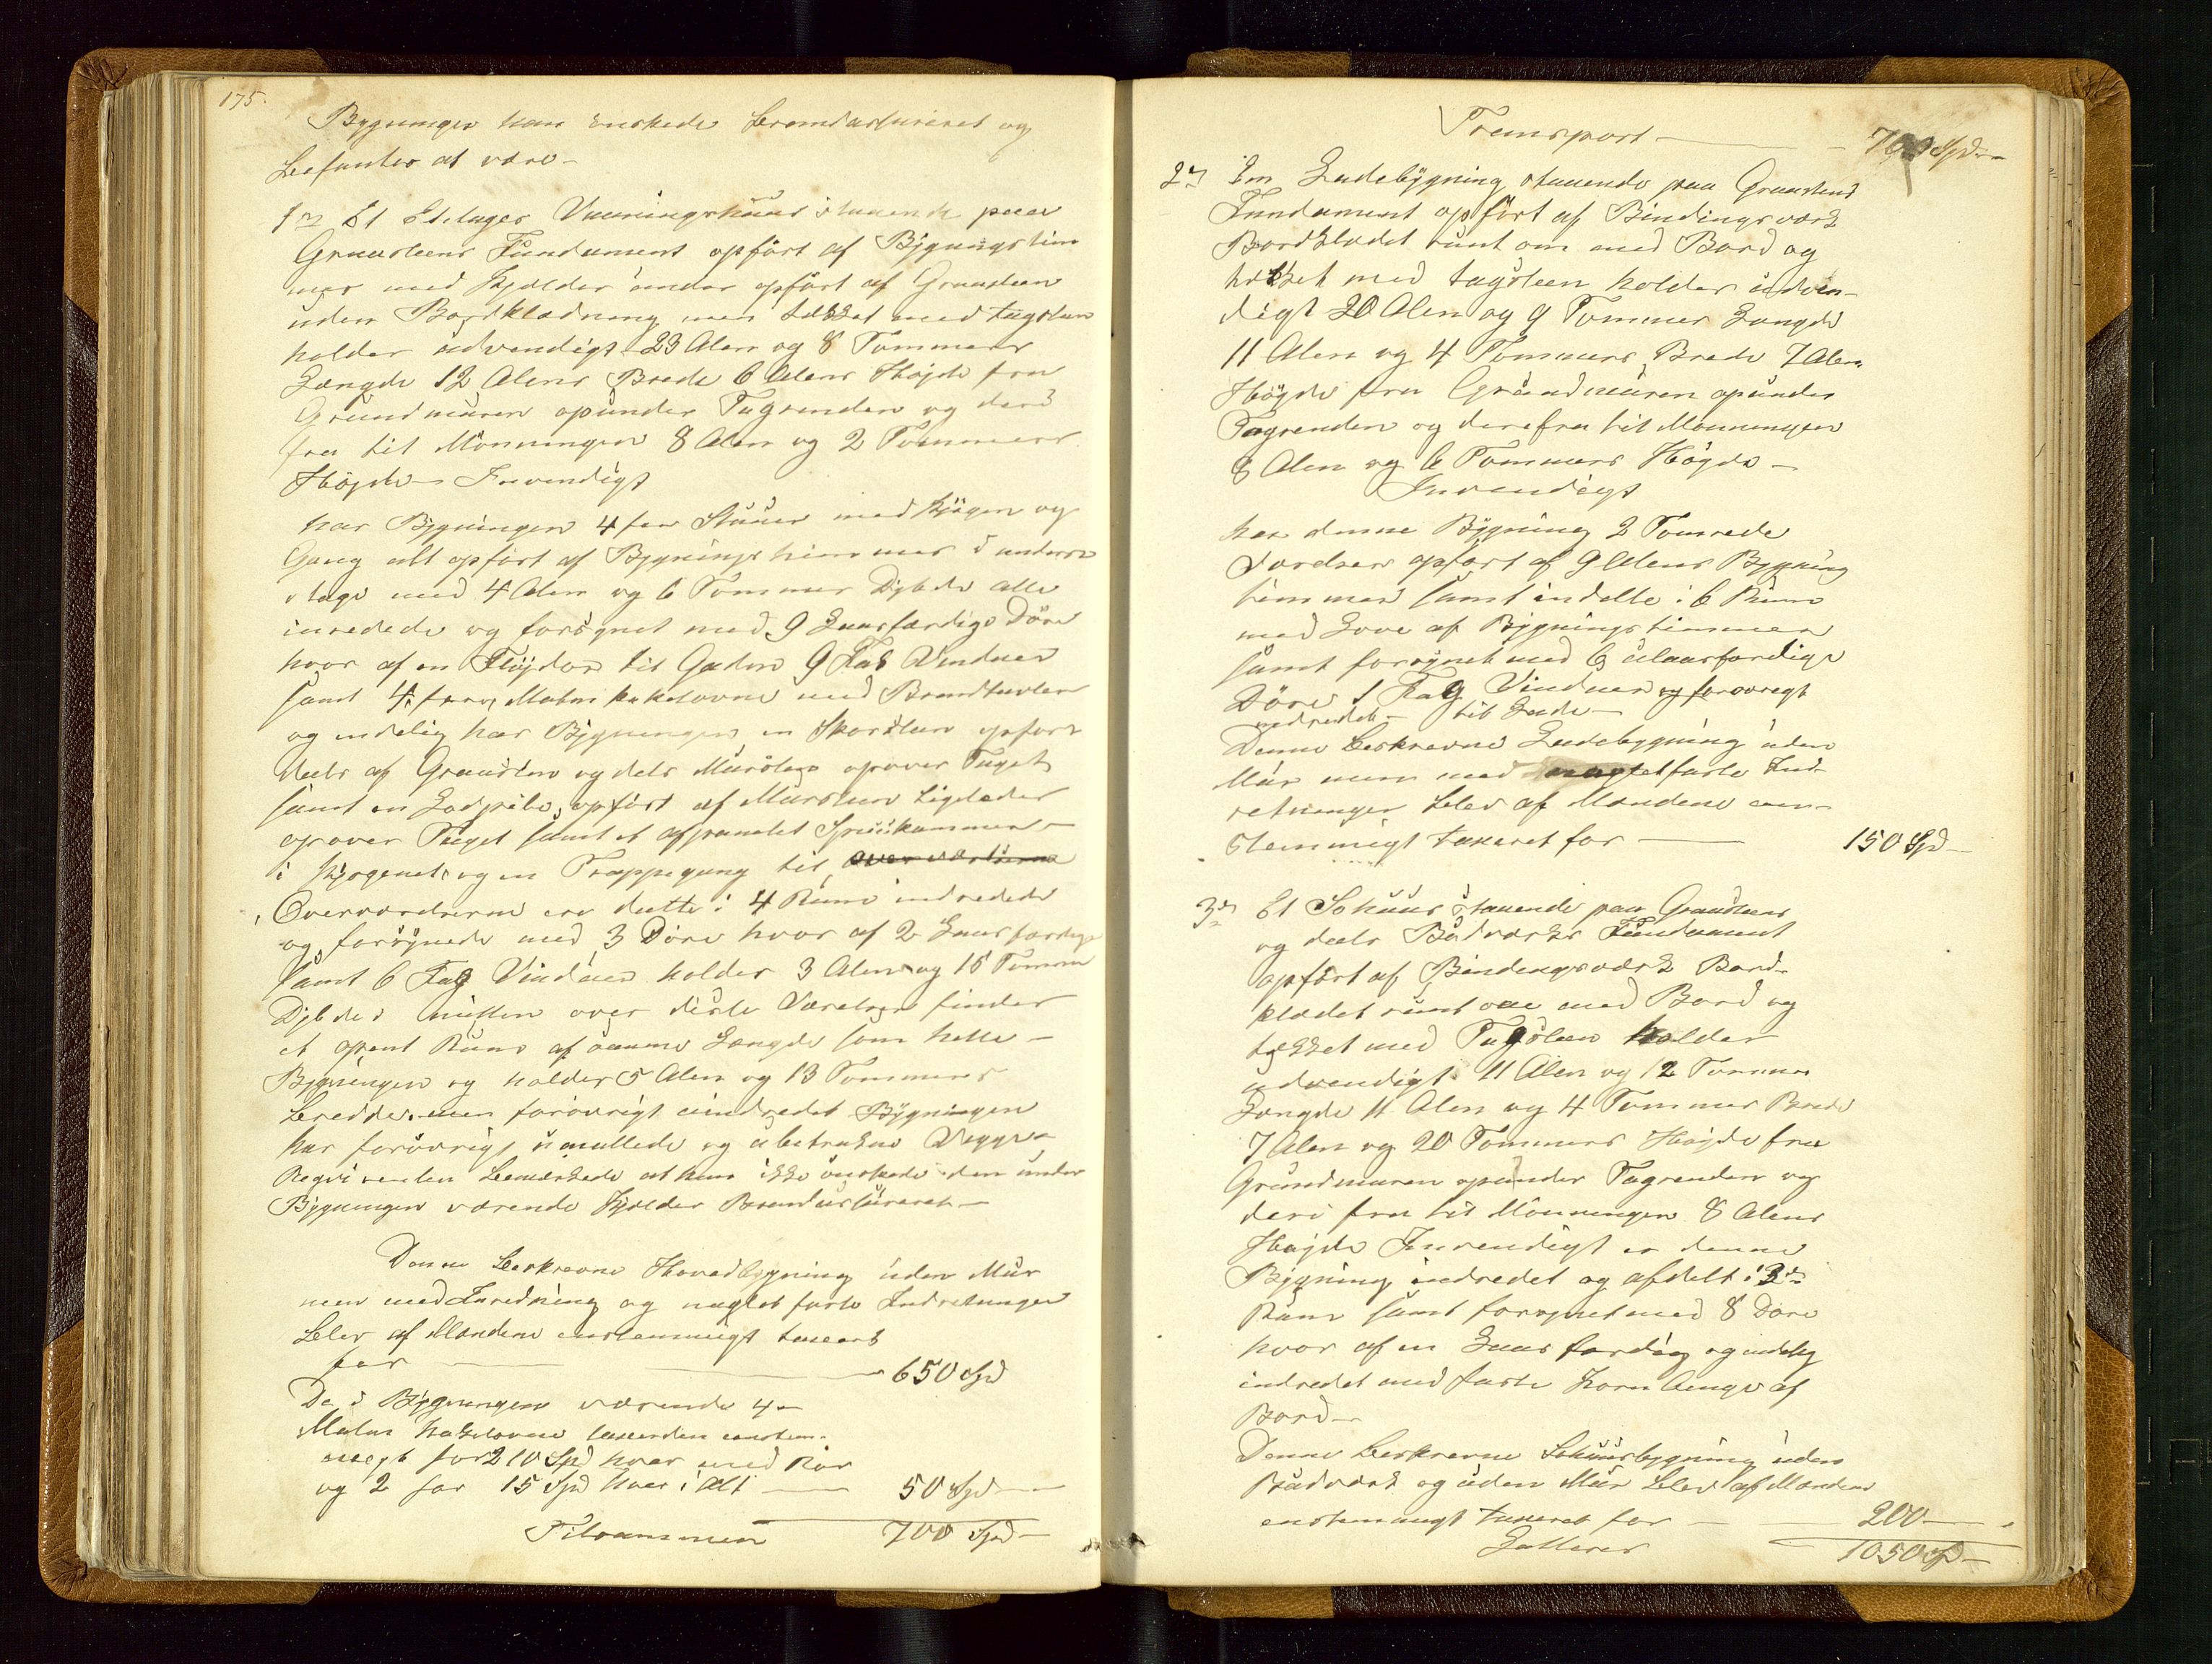 175.
Bygninger han önskede brandasureret og
befantes at være –
1ste Et Etetages Vaaningshuus staaende paa
Graasteens Fundament opfört af Bygningstim
mer med Kjælder under opfört af Graasteen
uden Bordklædning men tækket med tagsteen
holder udvendigt 23 Alen og 8 Tommers
Længde 12 Alens Brede 6 Alens Höjde fra
Grundmuren opunder Tagrenden og deri
fra til Mönningen 8 Alen og 2 Tommers
Höjde – Invendigt
har Bygningen 4 fer Stuuer med Kjögen og
Gang alt opfört af Bygningstimmer i underste
Etage med 4 Alen og 6 Tommer Dybde alle
inredede og forsynet med 9 Laasfærdige Döre
hvor af en Flöjdör til Gaden 9 Fag Vinduer
samt 4 Malm kakelovne med Brandtavler
og endelig har Bygningen en Skorsteen opfört
deels af Graasteen og dels Mursteen opover Taget
samt en Lodpibe opfört af Mursteen ligeleder
opover Taget samt et afpanelet Spiiskammer
i Kjögenet og en Trappegang til
Overværelserne ere dette i 4 Rum indredede
og forsynede med 3 Döre hvor af 2 Laasfærdige
samt 6 Fag Vinduer holder 3 Alen og 15 Tomme
Dybde i mitten over diste Værelser findes
et opent Rum af samme Længde som hele –
Bygningen og holder 5 Alen og 13 Tommers
bredde men forövrigt uindredet Bygningen
har forövrigt umallede og ubetrukne Vegge –
Reqvirenten bemærkede at han ikke önskede den under
Bygningen værende Kjelder Brandasureret –
Denne beskrevne Hovedbygning uden Mur
men med Inredning og naglet faste Indretninger
blev af Mændene enstemmigt taxeret
for – 650 Spd
De i Bygningen værende 4 –
Malm kakelovne taxerden enstem-
migt for 2 10 Spd hver med Rör
og 2 for 15 Spd hver i Alt – 50 Spd –
Tilsammen 700 Spd –
Transport – 700 Spd –
2den En Ladebygning staaende paa Graasteens
Fundament opfört af Bindingsværk
Bordklædet rünt om med Bord og
tækket med tagsteen holder udven-
digt 20 Alen og 9 Tommer Længde
11 Alen og 4 Tommers Brede 7 Alen
Höjde fra Grundmuren opunder
Tagrenden og derifra til Mönningen
8 Alen og 6 Tommers Höjde –
Invendigt
har denne Bygning 2 Tomrede
værelser opfört af 9 Alens Bygning
timmer samt indelte i 6 Rum
med Love af Bygningstimmer
samt forsynet med 6 ulaasfærdige
Döre 1 Fag Vinduer og forövrigt
indredet – til Lade –
Denne beskrevne Ladebygning uden
Mur men med nagletfaste Ind-
retninger blev af Mændene een-
stemmigt taxeret for – 150 Spd –
3de Et Sohuus staaende paa Graasteens
og deels Bulværks Fundament
opfört af Bindingsværk Bord-
klædet rünt om med Bord og
tækket med Tagsteen holder
udvendigt 11 Alen og 12 Tommer
Længde 11 Alen og 4 Tommer Brede
7 Alen og 20 Tommers Höjde fra
Grundmuren opunder Tagrenden og
deri fra til Mönningen 8 Alens
Höjde Invendigt er denne
Bygning indredet og afdelt i 3de
Rum samt forsynet med 8 Döre
hvor af en Laasfærdig og endelig
indredet med faste Korn binge af
Bord –
Denne beskrevne Sohuusbygning uden
Bulværk og uden Mur blev af Mændene
enstemmigt taxeret for – 200 –
Latteres 1050 Spd –